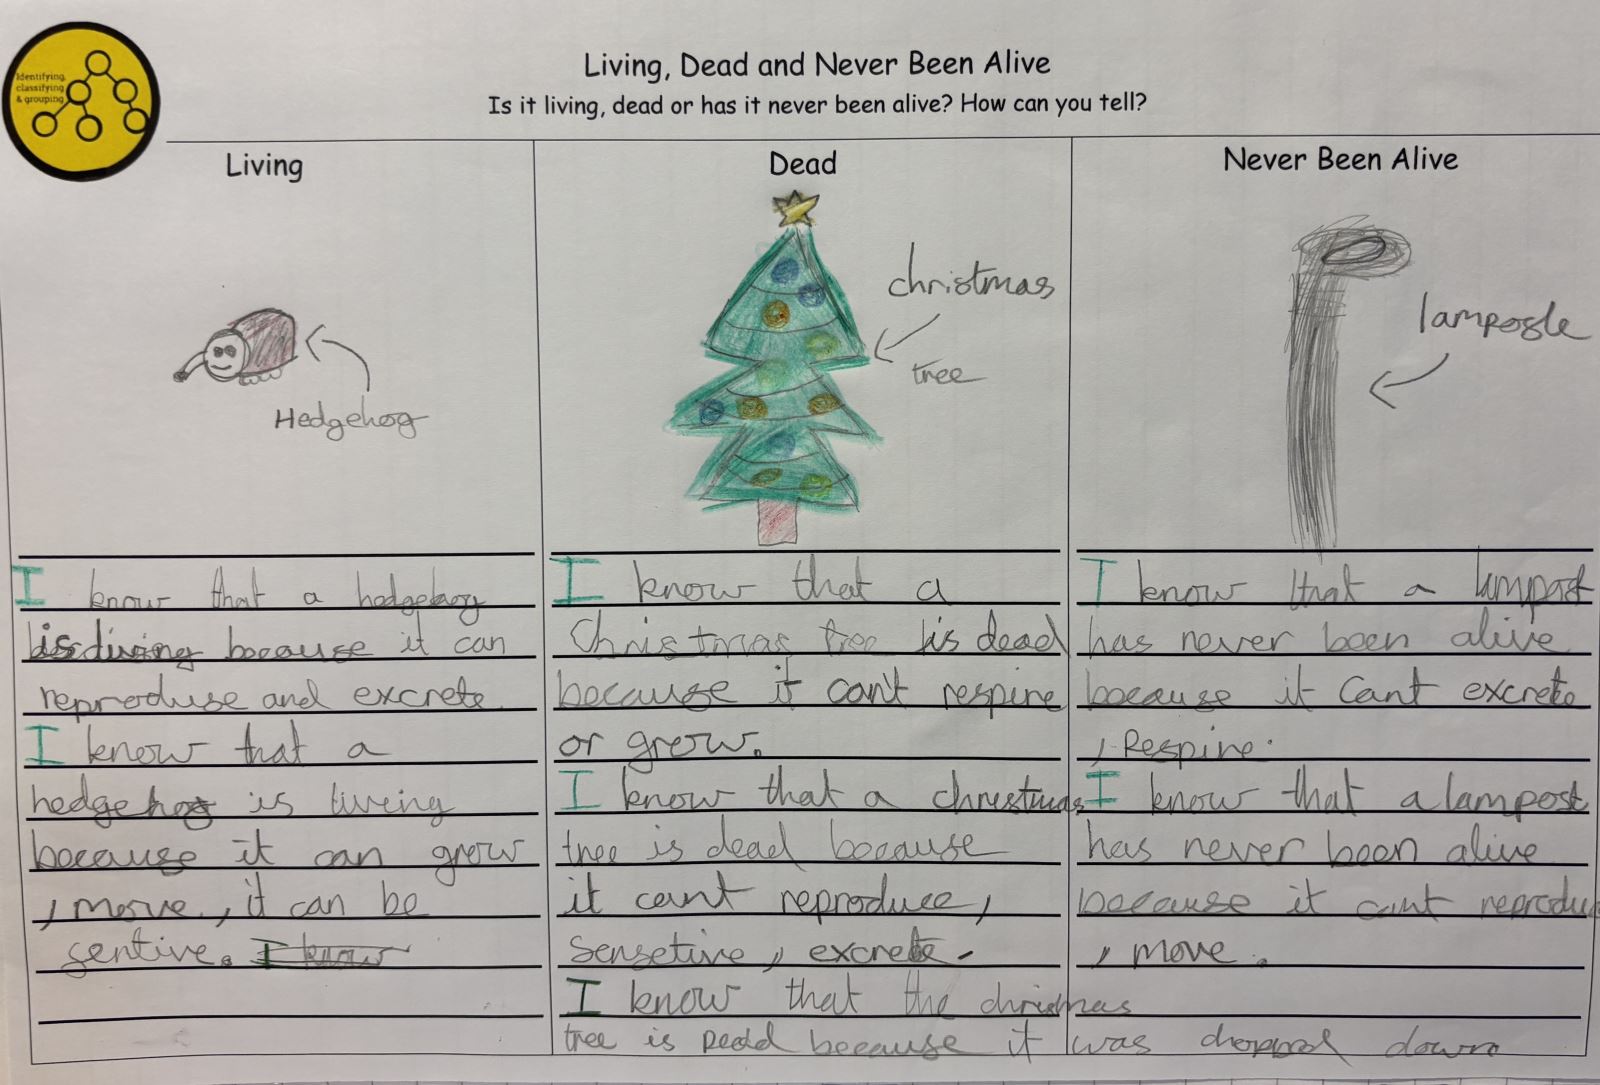 Identifying,
classifying
& grouping
Living, Dead and Never Been Alive
Is it living, dead or has it never been alive? How can you tell?
Living
Hedgehog
I know that a hedgehog
is living because it can
reproduse and excrete
I know that a
hedgehog is living
because it can grow
, move, it can be
sentive. I know
Dead
christmas
tree
I know that a
Christmas tree is dead
because it can't respire
or grow.
I know that a christmas
tree is dead because
it cant reproduce,
Sensetive, excrete.
I know that the chrismas
tree is Dead because it was chopped down
Never Been Alive
lamposte
I know that a lampost
has never been alive
because it Cant excrete
, Respire.
I know that a lampost
has never been alive
because it cant reproduce
, move.